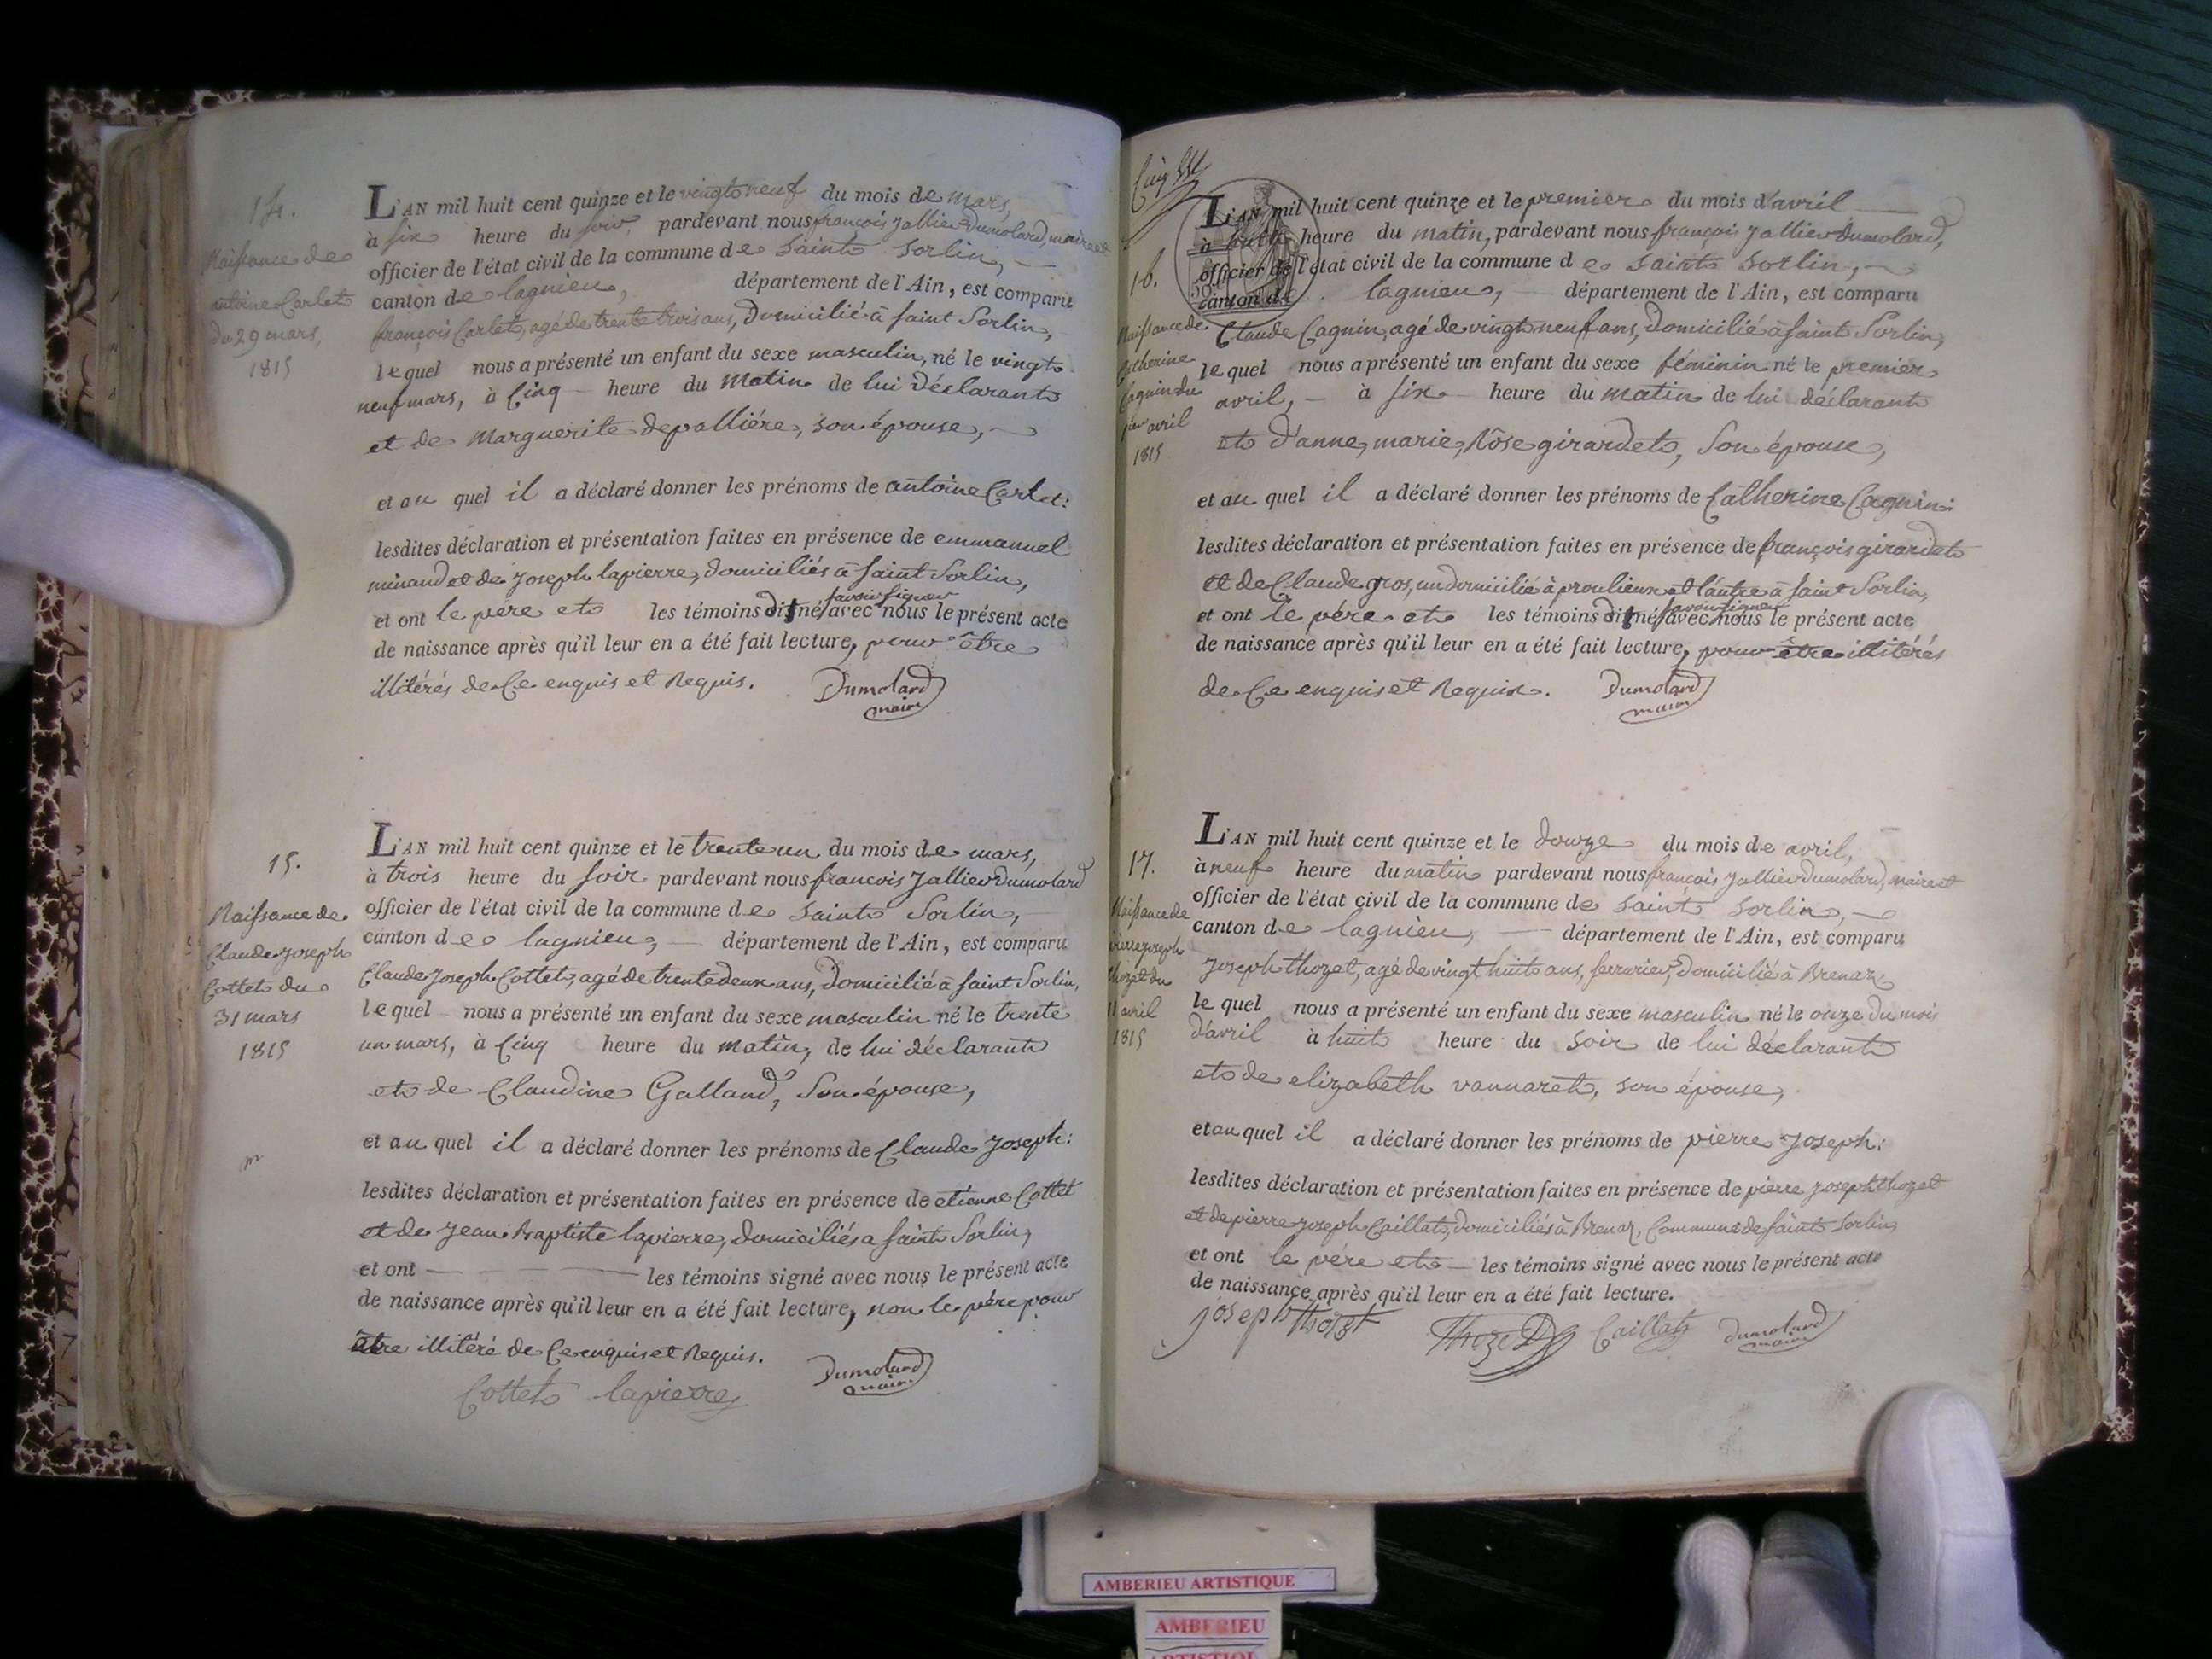 14.
Naissance de
antoine Carlet
Du 29 mars,
1815
L'AN mil huit cent quinze et le vingt neuf du mois de mars,
à six heure du soir, pardevant nous françois Jallier Dumolard, maire et
officier de l'état civil de la commune de saint sorlin,
canton de lagnieu, département de l'Ain, est comparu
françois Carlet, agé de trente trois ans, Domicilié à saint Sorlin,
lequel nous a présenté un enfant du sexe masculin, né le vingt
neuf mars, à Cinq heure du matin de lui déclarant
et de marguerite depallière, son épouse,
et au quel il a déclaré donner les prénoms de antoine Carlet:
lesdites déclaration et présentation faites en présence de emmanuel
minaud et de joseph lapierre, domiciliés à saint Sorlin,
savoir signer
et ont le père et les témoins dit né avec nous le présent acte
de naissance après qu'il leur en a été fait lecture, pour être
illitérés de Ce enquis et Requis. Dumolard
maire
15.
Naissance de
Claude Joseph
Cottet du
31 mars
1815
L'AN mil huit cent quinze et le trente un du mois de mars,
à trois heure du soir pardevant nous francois Jallier Dumolard
officier de l'état civil de la commune de saint Sorlin,
canton de lagnieu, département de l'Ain, est comparu
Claude Joseph Cottet, agé de trente deux ans, Domicilié à saint Sorlin,
lequel nous a présenté un enfant du sexe masculin né le trente
un mars, à Cinq heure du matin, de lui déclarant
et de Claudine Galland, Son épouse,
et au quel il a déclaré donner les prénoms de Claude Joseph:
lesdites déclaration et présentation faites en présence de etienne Cottet
et de Jean Baptiste lapierre, domiciliés a saint Sorlin,
et ont les témoins signé avec nous le présent acte
de naissance après qu'il leur en a été fait lecture, non le père pour
être illitéré de Ce enquis et Requis.
Cottet lapierre Dumolard
maire
16.
Naissance de
Catherine
Cagnin du
1er avril
1815
L'AN mil huit cent quinze et le premier du mois d'avril
à huit heure du matin, pardevant nous françois Jallier Dumolard,
officier de l'état civil de la commune de saint sorlin,
canton de lagnieu, département de l'Ain, est comparu
Claude Cagnin, agé de vingt neuf ans, Domicilié à saint Sorlin,
lequel nous a présenté un enfant du sexe féminin né le premier
avril, à six heure du matin de lui déclarant
et d'anne, marie, Rôse girardet, Son épouse,
et au quel il a déclaré donner les prénoms de Catherine Cagnin:
lesdites déclaration et présentation faites en présence de françois girardet
et de Claude gros, un domicilié à proulieux et l'autre à saint Sorlin,
savoir signer
et ont le père et les témoins dit né avec nous le présent acte
de naissance après qu'il leur en a été fait lecture, pour être illitérés
de Ce enquis et Requis. Dumolard
maire
17.
Naissance de
pierre joseph
thozet du
11 avril
1815
L'AN mil huit cent quinze et le douze du mois de avril,
à neuf heure du matin pardevant nous françois Jallier Dumolard, maire et
officier de l'état civil de la commune de saint sorlin,
canton de lagnieu, département de l'Ain, est comparu
Joseph thozet, agé de vingt huit ans, serrurier, Domicilié à Brenaz
lequel nous a présenté un enfant du sexe masculin né le onze du mois
d'avril à huit heure du soir de lui déclarant
et de elizabeth vannaret, son épouse,
et au quel il a déclaré donner les prénoms de pierre joseph:
lesdites déclaration et présentation faites en présence de pierre joseph thozet
et de pierre joseph Caillat, domiciliés à Brenaz, Commune de saint Sorlin
et ont le père et les témoins signé avec nous le présent acte
de naissance après qu'il leur en a été fait lecture.
joseph thozet Thozet Caillat Dumolard
maire
AMBERIEU ARTISTIQUE
AMBERIEU